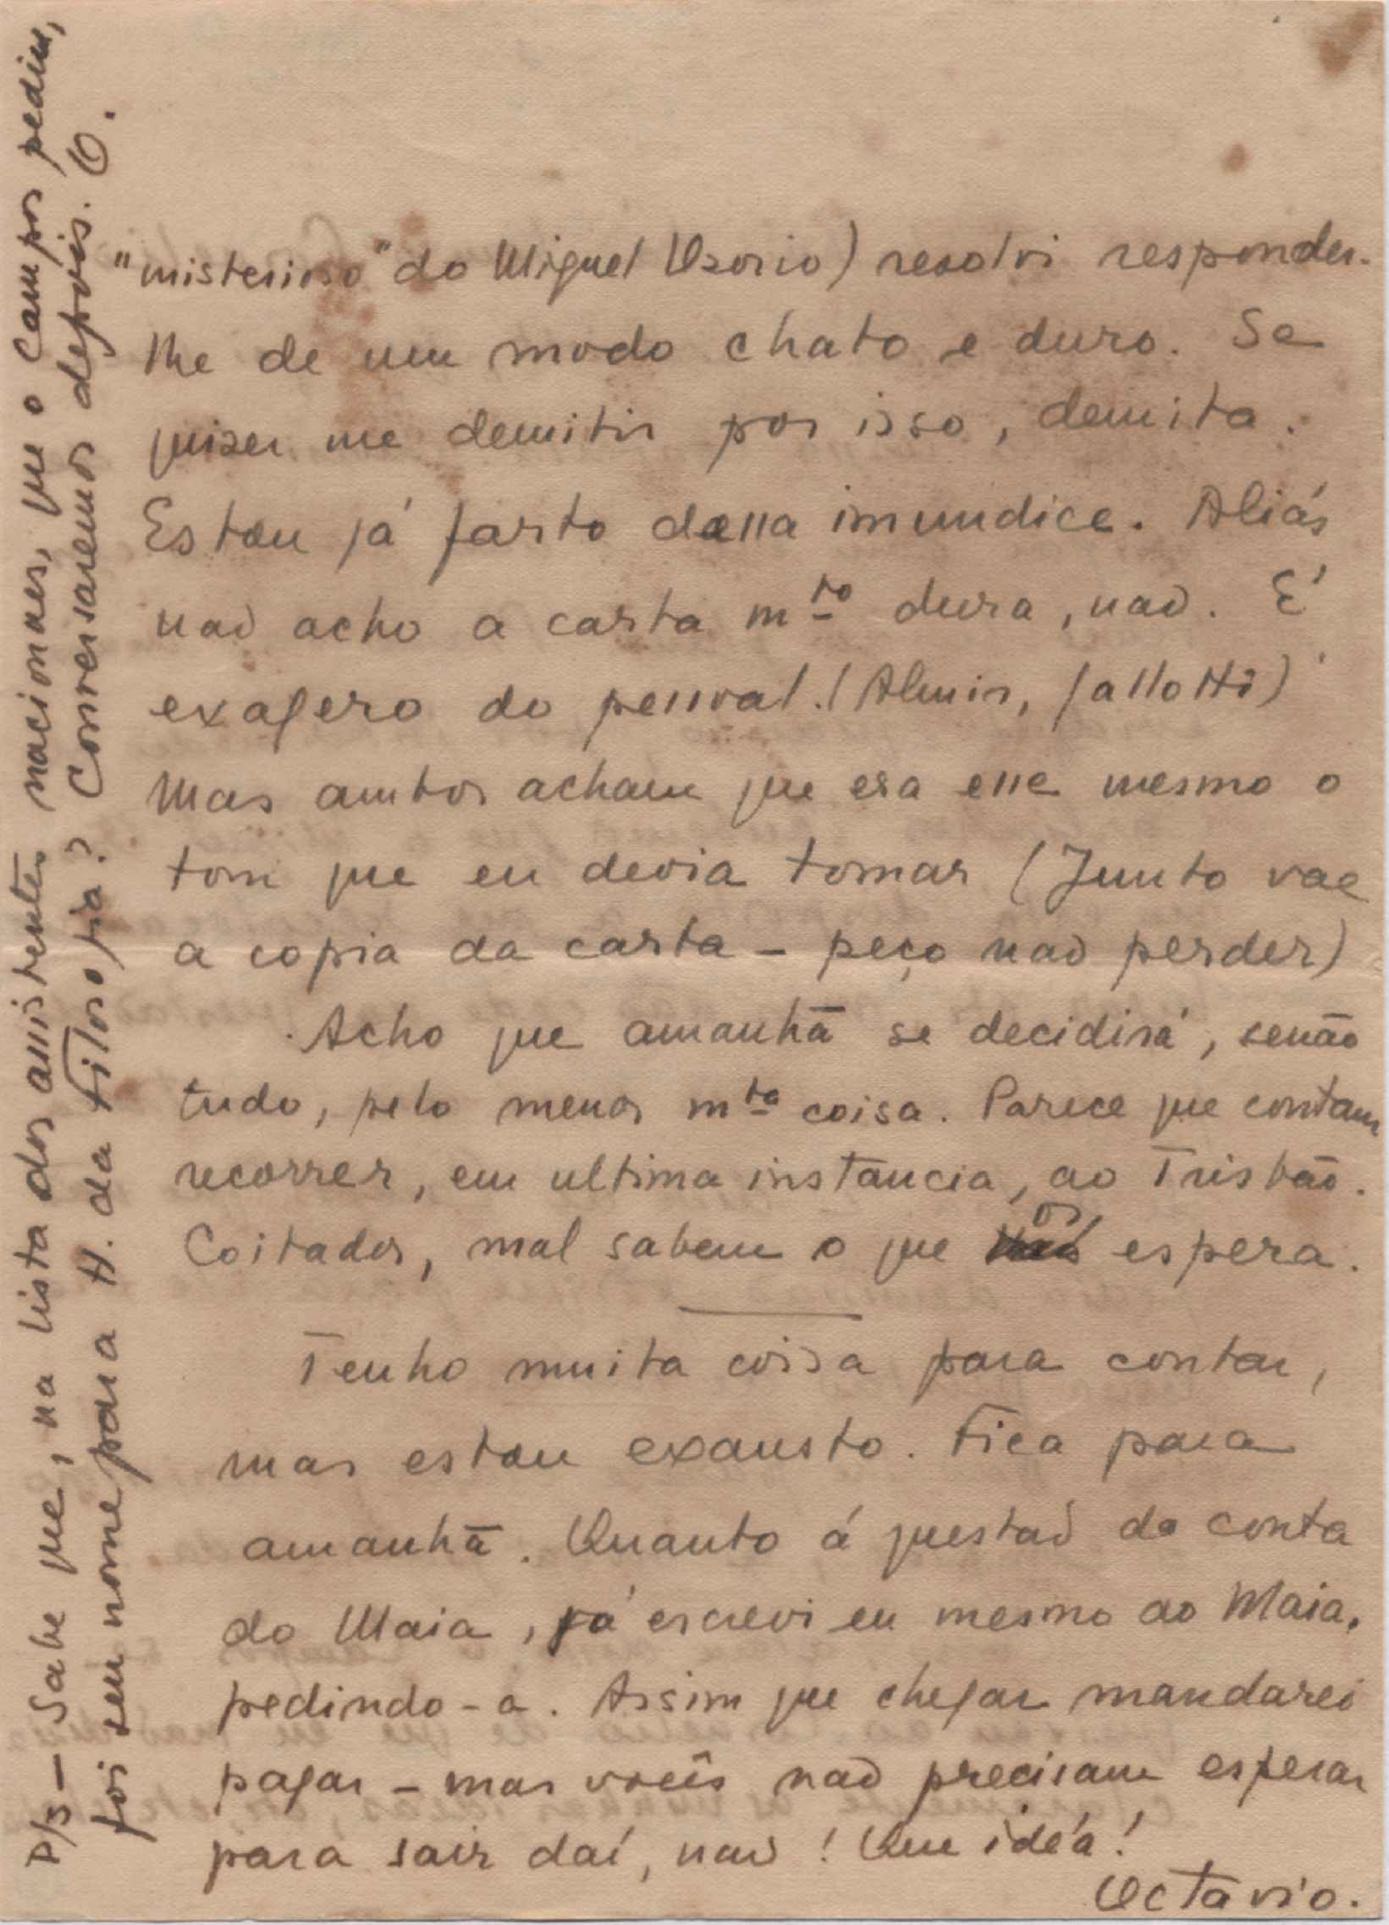 "misterioso" do Miguel Ozorio) resolvi responder-
lhe de um modo chato e duro. Se
quizer me demitir por isso, demita.
Estou já farto dessa imundice. Aliás
naõ acho a carta m.to dura, naõ. É
exagero do pessoal. (Almir, Gallotti)
Mas ambos acham que era esse mesmo o
tom que eu devia tomar (Junto vae
a copia da carta - peço naõ perder)
Acho que amanhã se decidirá, senão
tudo, pelo menos m.ta coisa. Parece que contam
recorrer, em ultima instancia, ao Tristão.
Coitados, mal sabem o que os espera.
Tenho muita coisa para contar,
mas estou exausto. Fica para
amanhã. Quanto á questaõ da conta
do Maia, já escrevi eu mesmo ao Maia,
pedindo-a. Assim que chegar mandarei
pagar - mas vocês naõ precisam esperar
para sair daí, naõ! Que idéa!
Octavio.
P/S - Sabe que, na lista dos assistentes nacionaes, que o Campos pediu,
foi seu nome para H. da Filosofia? Conversaremos depois. O.